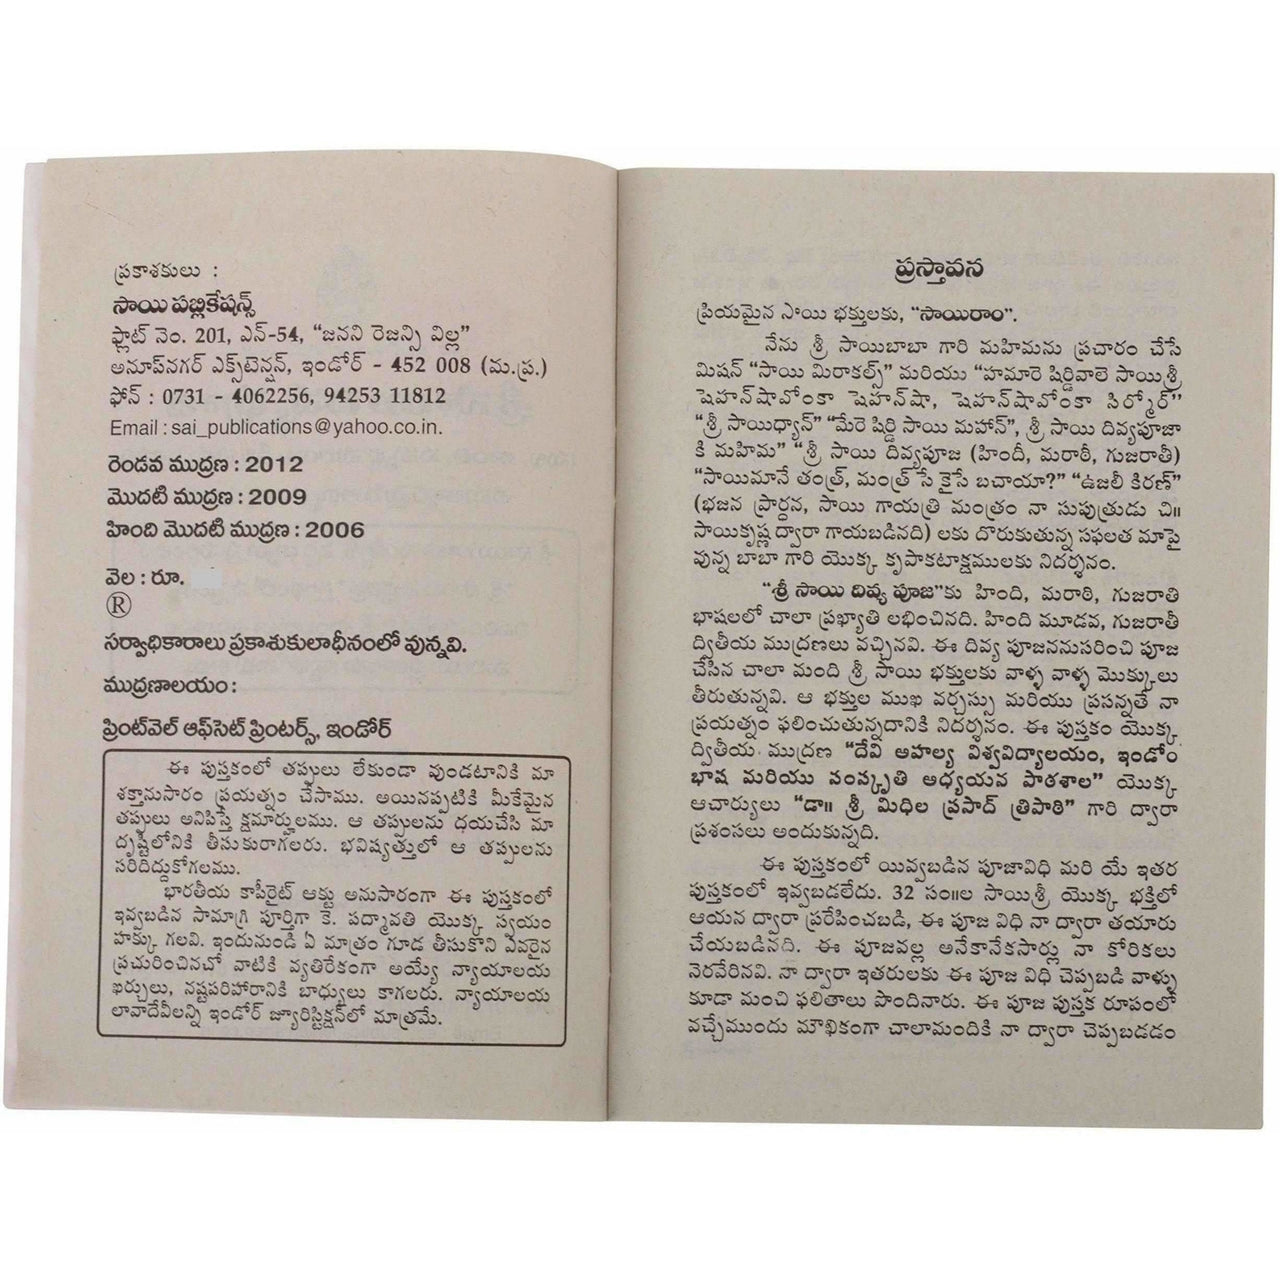 ప్రకాశకులు :
సాయి పబ్లికేషన్స్
ఫ్లాట్ నెం. 201, ఎన్-54, “జనని రెజన్సి విల్ల”
అనూప్‌నగర్ ఎక్స్‌టెన్షన్, ఇండోర్ - 452 008 (మ.ప్ర.)
ఫోన్ : 0731 - 4062256, 94253 11812
Email : sai_publications@yahoo.co.in.
రెండవ ముద్రణ : 2012
మొదటి ముద్రణ : 2009
హింది మొదటి ముద్రణ : 2006
వెల : రూ.
®
సర్వాధికారాలు ప్రకాశుకులాధీనంలో వున్నవి.
ముద్రణాలయం :
ప్రింట్‌వెల్ ఆఫ్‌సెట్ ప్రింటర్స్, ఇండోర్
ఈ పుస్తకంలో తప్పులు లేకుండా వుండటానికి మా
శక్తానుసారం ప్రయత్నం చేసాము. అయినప్పటికి మీకేమైన
తప్పులు అనిపిస్తే క్షమార్హులము. ఆ తప్పులను దయచేసి మా
దృష్టిలోనికి తీసుకురాగలరు. భవిష్యత్తులో ఆ తప్పులను
సరిదిద్దుకోగలము.
భారతీయ కాపీరైట్ ఆక్టు అనుసారంగా ఈ పుస్తకంలో
ఇవ్వబడిన సామాగ్రి పూర్తిగా కె. పద్మావతి యొక్క స్వయం
హక్కు గలవి. ఇందునుండి ఏ మాత్రం గూడ తీసుకొని ఎవరైన
ప్రచురించినచో వాటికి వ్యతిరేకంగా అయ్యే న్యాయాలయ
ఖర్చులు, నష్టపరిహారానికి బాధ్యులు కాగలరు. న్యాయాలయ
లావాదేవీలన్ని ఇండోర్ జ్యూరిస్టిక్షన్‌లో మాత్రమే.
ప్రస్తావన
ప్రియమైన సాయి భక్తులకు, “సాయిరాం”.
నేను శ్రీ సాయిబాబా గారి మహిమను ప్రచారం చేసే
మిషన్ “సాయి మిరాకల్స్” మరియు “హమారె షిర్డివాలె సాయిశ్రీ
షెహన్‌షావోంకా షెహన్‌షా, షెహన్‌షావోంకా సిర్మోర్”
“శ్రీ సాయిధ్యాన్” “మేరె షిర్డి సాయి మహాన్”, శ్రీ సాయి దివ్యపూజా
కి మహిమ” “శ్రీ సాయి దివ్యపూజ (హిందీ, మరాఠీ, గుజరాతీ)
“సాయిమానే తంత్ర్, మంత్ర్ సే కైసే బచాయా?” “ఉజలీ కిరణ్”
(భజన ప్రార్ధన, సాయి గాయత్రి మంత్రం నా సుపుత్రుడు చి॥
సాయికృష్ణ ద్వారా గాయబడినది) లకు దొరుకుతున్న సఫలత మాపై
వున్న బాబా గారి యొక్క కృపాకటాక్షములకు నిదర్శనం.
“శ్రీ సాయి దివ్య పూజ”కు హింది, మరాఠి, గుజరాతి
భాషలలో చాలా ప్రఖ్యాతి లభించినది. హింది మూడవ, గుజరాతీ
ద్వితీయ ముద్రణలు వచ్చినవి. ఈ దివ్య పూజననుసరించి పూజ
చేసిన చాలా మంది శ్రీ సాయి భక్తులకు వాళ్ళ వాళ్ళ మొక్కులు
తీరుతున్నవి. ఆ భక్తుల ముఖ వర్చస్సు మరియు ప్రసన్నతే నా
ప్రయత్నం ఫలించుతున్నదానికి నిదర్శనం. ఈ పుస్తకం యొక్క
ద్వితీయ ముద్రణ “దేవి అహల్య విశ్వవిద్యాలయం, ఇండోర్
భాష మరియు సంస్కృతి అధ్యయన పాఠశాల” యొక్క
ఆచార్యులు “డా॥ శ్రీ మిధిల ప్రసాద్ త్రిపాఠి” గారి ద్వారా
ప్రశంసలు అందుకున్నది.
ఈ పుస్తకంలో యివ్వబడిన పూజావిధి మరి యే ఇతర
పుస్తకంలో ఇవ్వబడలేదు. 32 సం॥ల సాయిశ్రీ యొక్క భక్తిలో
ఆయన ద్వారా ప్రరేపించబడి, ఈ పూజ విధి నా ద్వారా తయారు
చేయబడినది. ఈ పూజవల్ల అనేకానేకసార్లు నా కోరికలు
నెరవేరినవి. నా ద్వారా ఇతరులకు ఈ పూజ విధి చెప్పబడి వాళ్ళు
కూడా మంచి ఫలితాలు పొందినారు. ఈ పూజ పుస్తక రూపంలో
వచ్చేముందు మౌఖికంగా చాలామందికి నా ద్వారా చెప్పబడడం